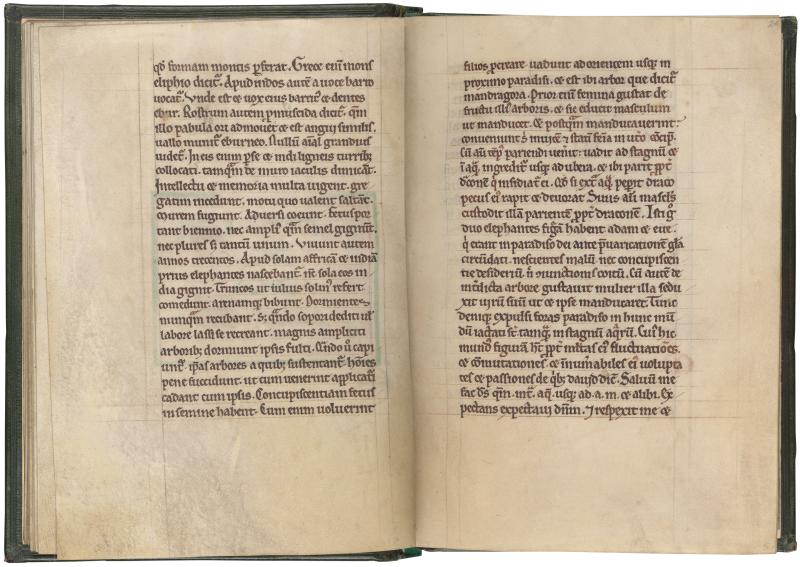 qđ formam montis p̄ferat. Grece enī mons
eliphio dicit᷑. Apud indos autē a uoce barro
uocat᷑. Vnde est ⁊ uox eius barrit᷒ ⁊ dentes
ebur. Rostrum autem ꝓmuscida dicit᷑. qm̄
illo pabula ori admouet ⁊ est angui similis.
uallo munit᷑ eburneo. Nullū aīal grandius
uidet᷑. In eis enim pse ⁊ indi ligneis turrib;
collocati. tamqͣm de muro iaculis dimicāt.
Intellectu ⁊ memoria multa uigent. gre
gatim incedunt. motu quo ualent saltāt.
Murem fugiunt. Auersi coeunt. Fetus por
tant biennio. nec ampli᷒ qͣm semel gignunt.
nec plures s; tantū unum. Viuunt autem
annos trecentos. Apud solam affricā ⁊ indiā
prius elephantes nascebant᷑. nc̄ sola eos in
dia gignit. Truncos ut iulius solin᷒ refert
comedunt. arenamq; bibunt. Dormientes
nunqͣm recubant. S; qn̄do sopori dediti uł
labore lassi se recreant. magnis ampliciti
arborib; dormiunt ipsis fulti. Qn̄do ū capi
unt᷑. ipas arbores a quib; sustentant᷑ hōies
pene succidunt. ut cum uenerint applicati
cadant cum ipsis. Concupiscentiam fetus
in semine habent. Cum enim uoluerint
filios ꝓcreare. uadunt ad orientem usq; in
proximo paradisi. ⁊ est ibi arbor que dicit᷑
mandragora. Prior enī femina gustat de
fructu illi᷒ arboris. ⁊ sic educit masculum
ut manducet. Et postqͣm manducauerint.
conueniunt s᷑ inuicē ⁊ statī fēīa in utō cōcip̄.
Cū aū temp᷒ pariendi uenit. uadit ad stagnū ⁊
ī aq̄ ingredit᷑ usq; ad ubera. ⁊ ibi parit ꝓpt᷑
dͣconē q̄ insidiat᷑ ei. Qđ si extͣ aq̄ peperit draco
pecus ei᷒ rapit ⁊ deuorat. Suus aū masc̄ls
custodit illā parientē ꝓpt᷑ draconē. Isti ḡ
duo elephantes figͣā habent adam ⁊ eue.
q̄ erant in paradiso dei ante p̄uaricationē glā
circūdati. nescientes malū nec concupiscen
tie desideriū. n̄ iunctionis coitū. Cū autē de
interdicta arbore gustauit mulier illa sedu
xit uirū suū ut ⁊ ipse manducaret. Tunc
deniq; expulsi foras paradiso in hunc mū
dū iactati st̄ tamq̄ in stagnū aqͣrū. Cui᷒ hic
mund᷒ figurā ht̄ ꝓpt᷑ mltas ei᷒ fluctuatiōes.
⁊ cōmutationes ⁊ innūabiles ei᷒ uolupta
tes ⁊ passiones de qb; dauid dic̄. Saluū me
fac ds̄ qm̄ int̄. aq̄. usq; ad. a. m. ⁊ alibi. Ex
pectans expectaui dn̄m. ⁊ respexit me ⁊